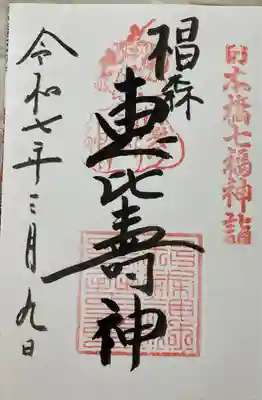 日本橋七福神詣
椙森
恵比寿神
令和七年三月九日